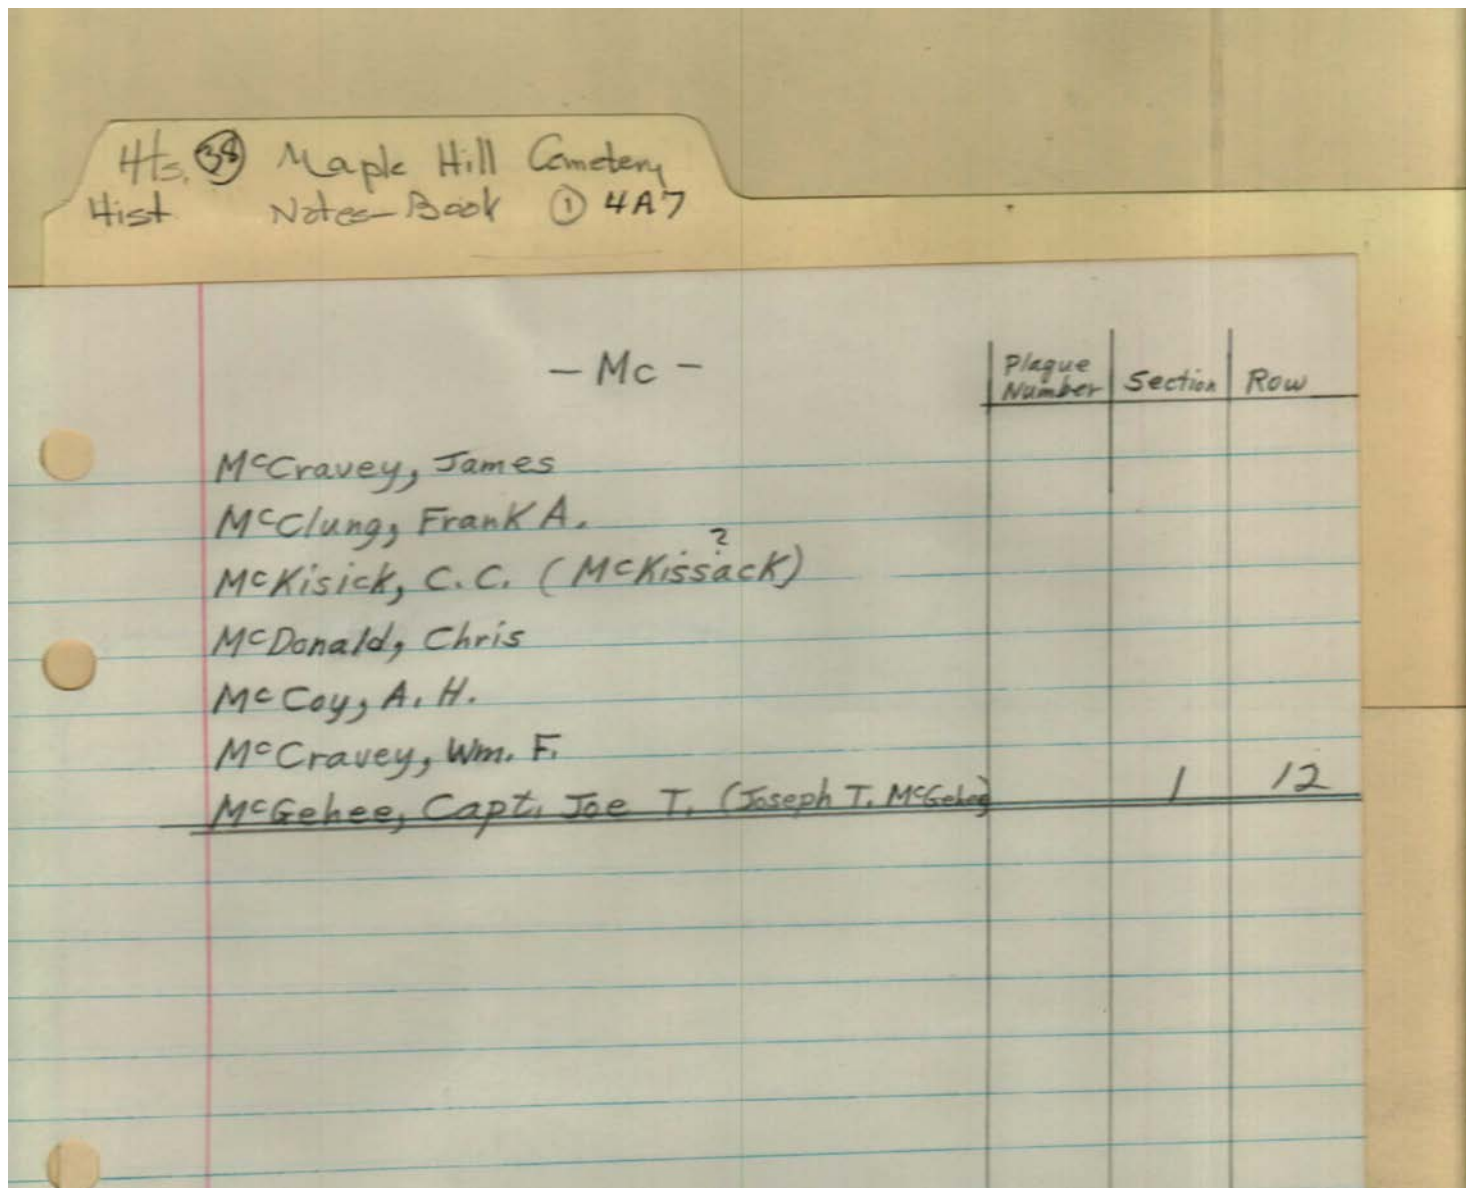 Hts. 38 Maple Hill Cemetery
Hist Notes-Book 1 4A7
- Mc -
Plaque Number Section Row
McCravey, James
McClung, Frank A.
McKisick, C.C. (McKissack) ?
McDonald, Chris
McCoy, A. H.
McCravey, Wm. F.
McGehee, Capt. Joe T. (Joseph T. McGehee) 1 12